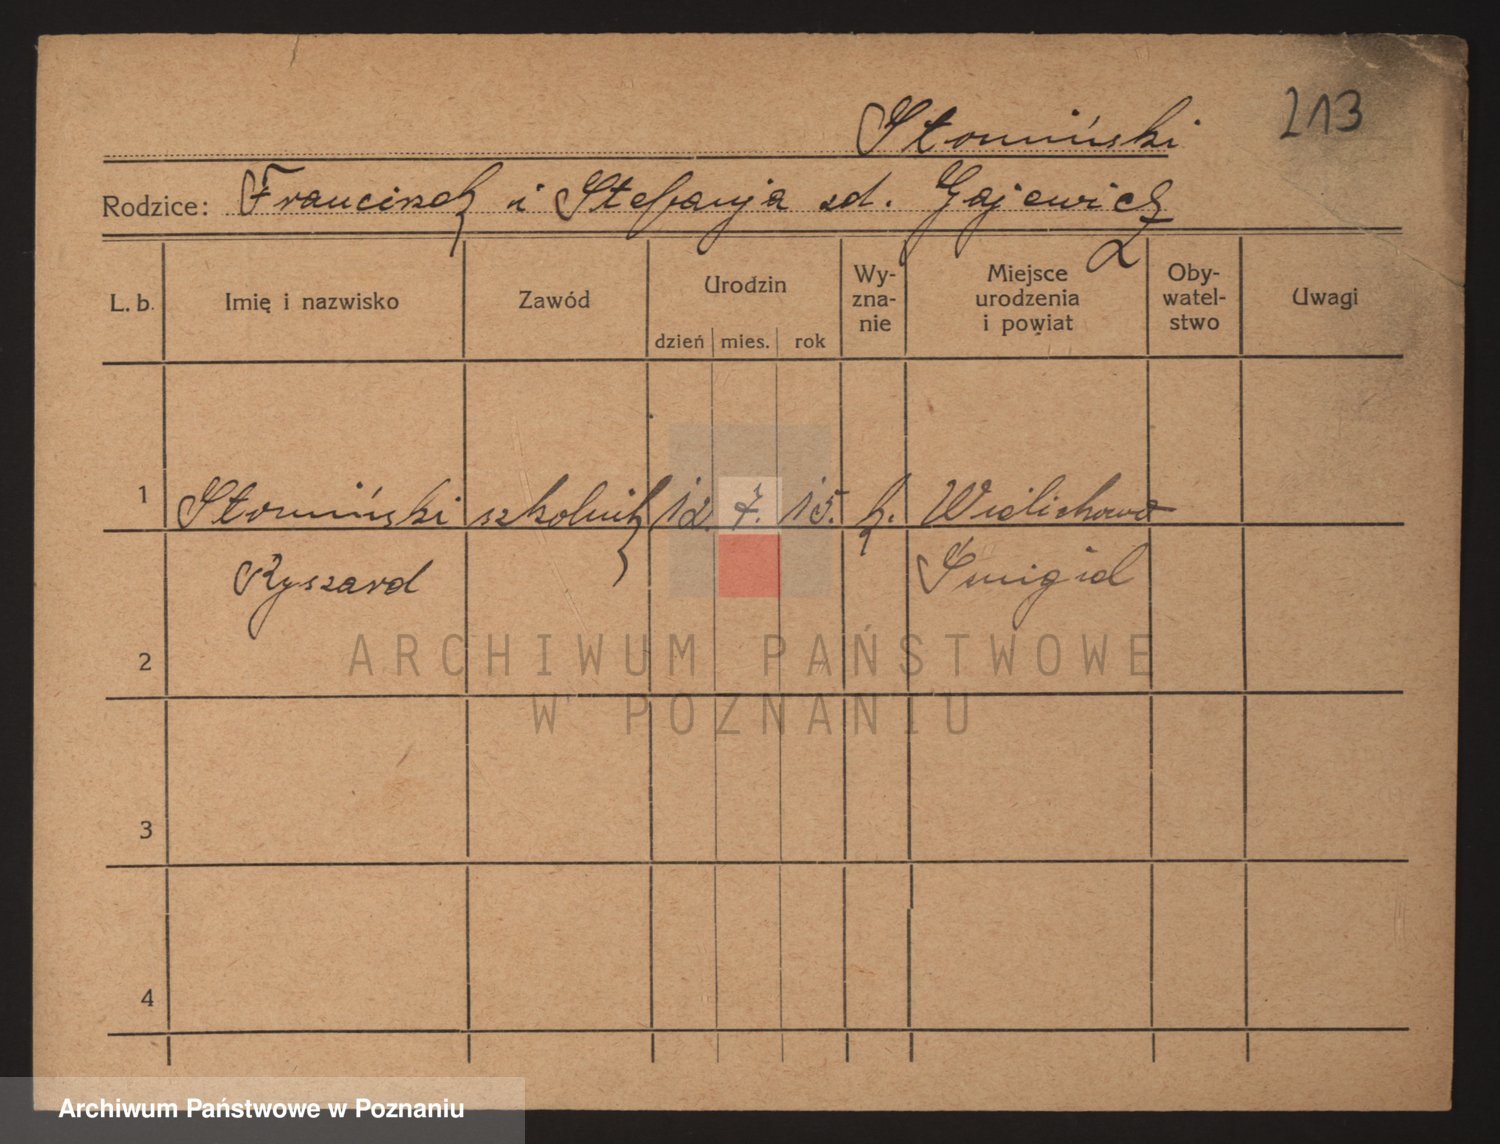 213
Słomiński
Rodzice: Franciszek i Stefanja zd. Gajewicz
L. b. Imię i nazwisko Zawód Urodzin dzień mies. rok Wy-zna-nie Miejsce urodzenia i powiat Oby-watel-stwo Uwagi
1 Słomiński szkolnik 12. 7. 15. k. Wielichowo
Ryszard Śmigiel
2
3
4
ARCHIWUM PAŃSTWOWE
W POZNANIU
Archiwum Państwowe w Poznaniu